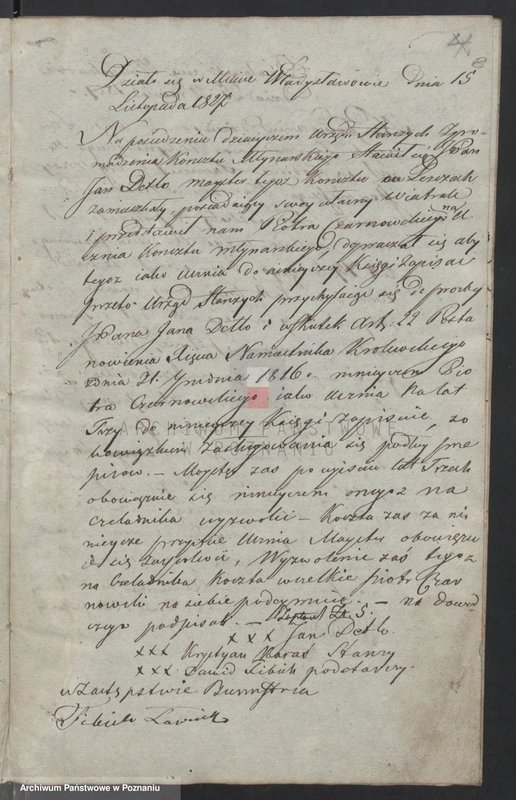 Działo się w Miescie Władysławowie Dnia 15
Listopada 1827
Na posiedzeniu dzisieyszem Urzędu Starszych Zgro-
madzenia Konsztu Młynarskiego Stawił się JPan
Jan Detlo mayster tegoż Konsztu w
zamieszkały posiadaiący swoy własny wiatrak
i przedstawił nam Piotra Czarnowskiego na U-
cznia Konsztu młynarskiego, dopraszał się aby
tegoz iako Ucznia do ninieyszey Księgi zapisać
Przeto Urząd Starszych przychylaiąc się do prozby
JPana Jana Detlo i w skutek Art: 22 Posta
nowienia Xięcia Namiestnika Krolewskiego
z dnia 31 Grudnia 1816 r. ninieyszem Pio
tra Czarnowskiego iako Ucznia na lat
Trzy do ninieyszey Księgi zapisuie, zo
bowiązkiem zastosowania się podług prze
pisow. — Mayster zas po upisciu lat Trzech
obowiązuie się ninieyszem onegoz na
czeladnika wyzwolić — Koszta zas za ni-
nieysze przyięcie Ucznia Mayster obowiązu
ie się zaspokoić, Wyzwolenie zaś tegoz
na Czeladnika Koszta wszelkie Piotr Czar
nowski na siebie podeymuie. — na dowod
czego podpisał. — Zł 5.
xxx Jan Detlo.
xxx Krystyan Starszy
xxx Dawid podstarszy.
w Zastępstwie Burmistrza
Ławnik
4
ARCHIWUM PAŃSTWOWE
W POZNANIU
Archiwum Państwowe w Poznaniu